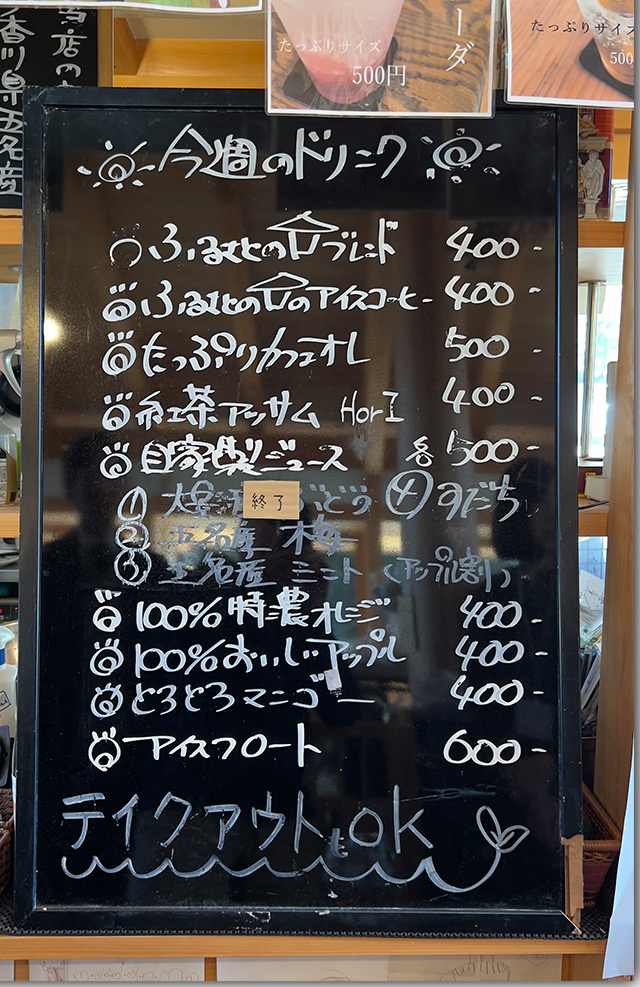 たっぷりサイズ
500円
ーダ
たっぷりサイズ
500
香川県五名産
今週のドリンク
ふるさとの家ブレンド 400-
ふるさとの家のアイスコーヒー 400-
たっぷりカフェオレ 500-
紅茶アッサム HorI 400-
自家製ジュース 各500-
① 終了 ぶどう ④すだち
② 五名産 梅
③ 五名産 ミント (アップル割)
100%特濃オレンジ 400-
100%おいしいアップル 400-
とろとろマンゴー 400-
アイスフロート 600-
テイクアウトもok